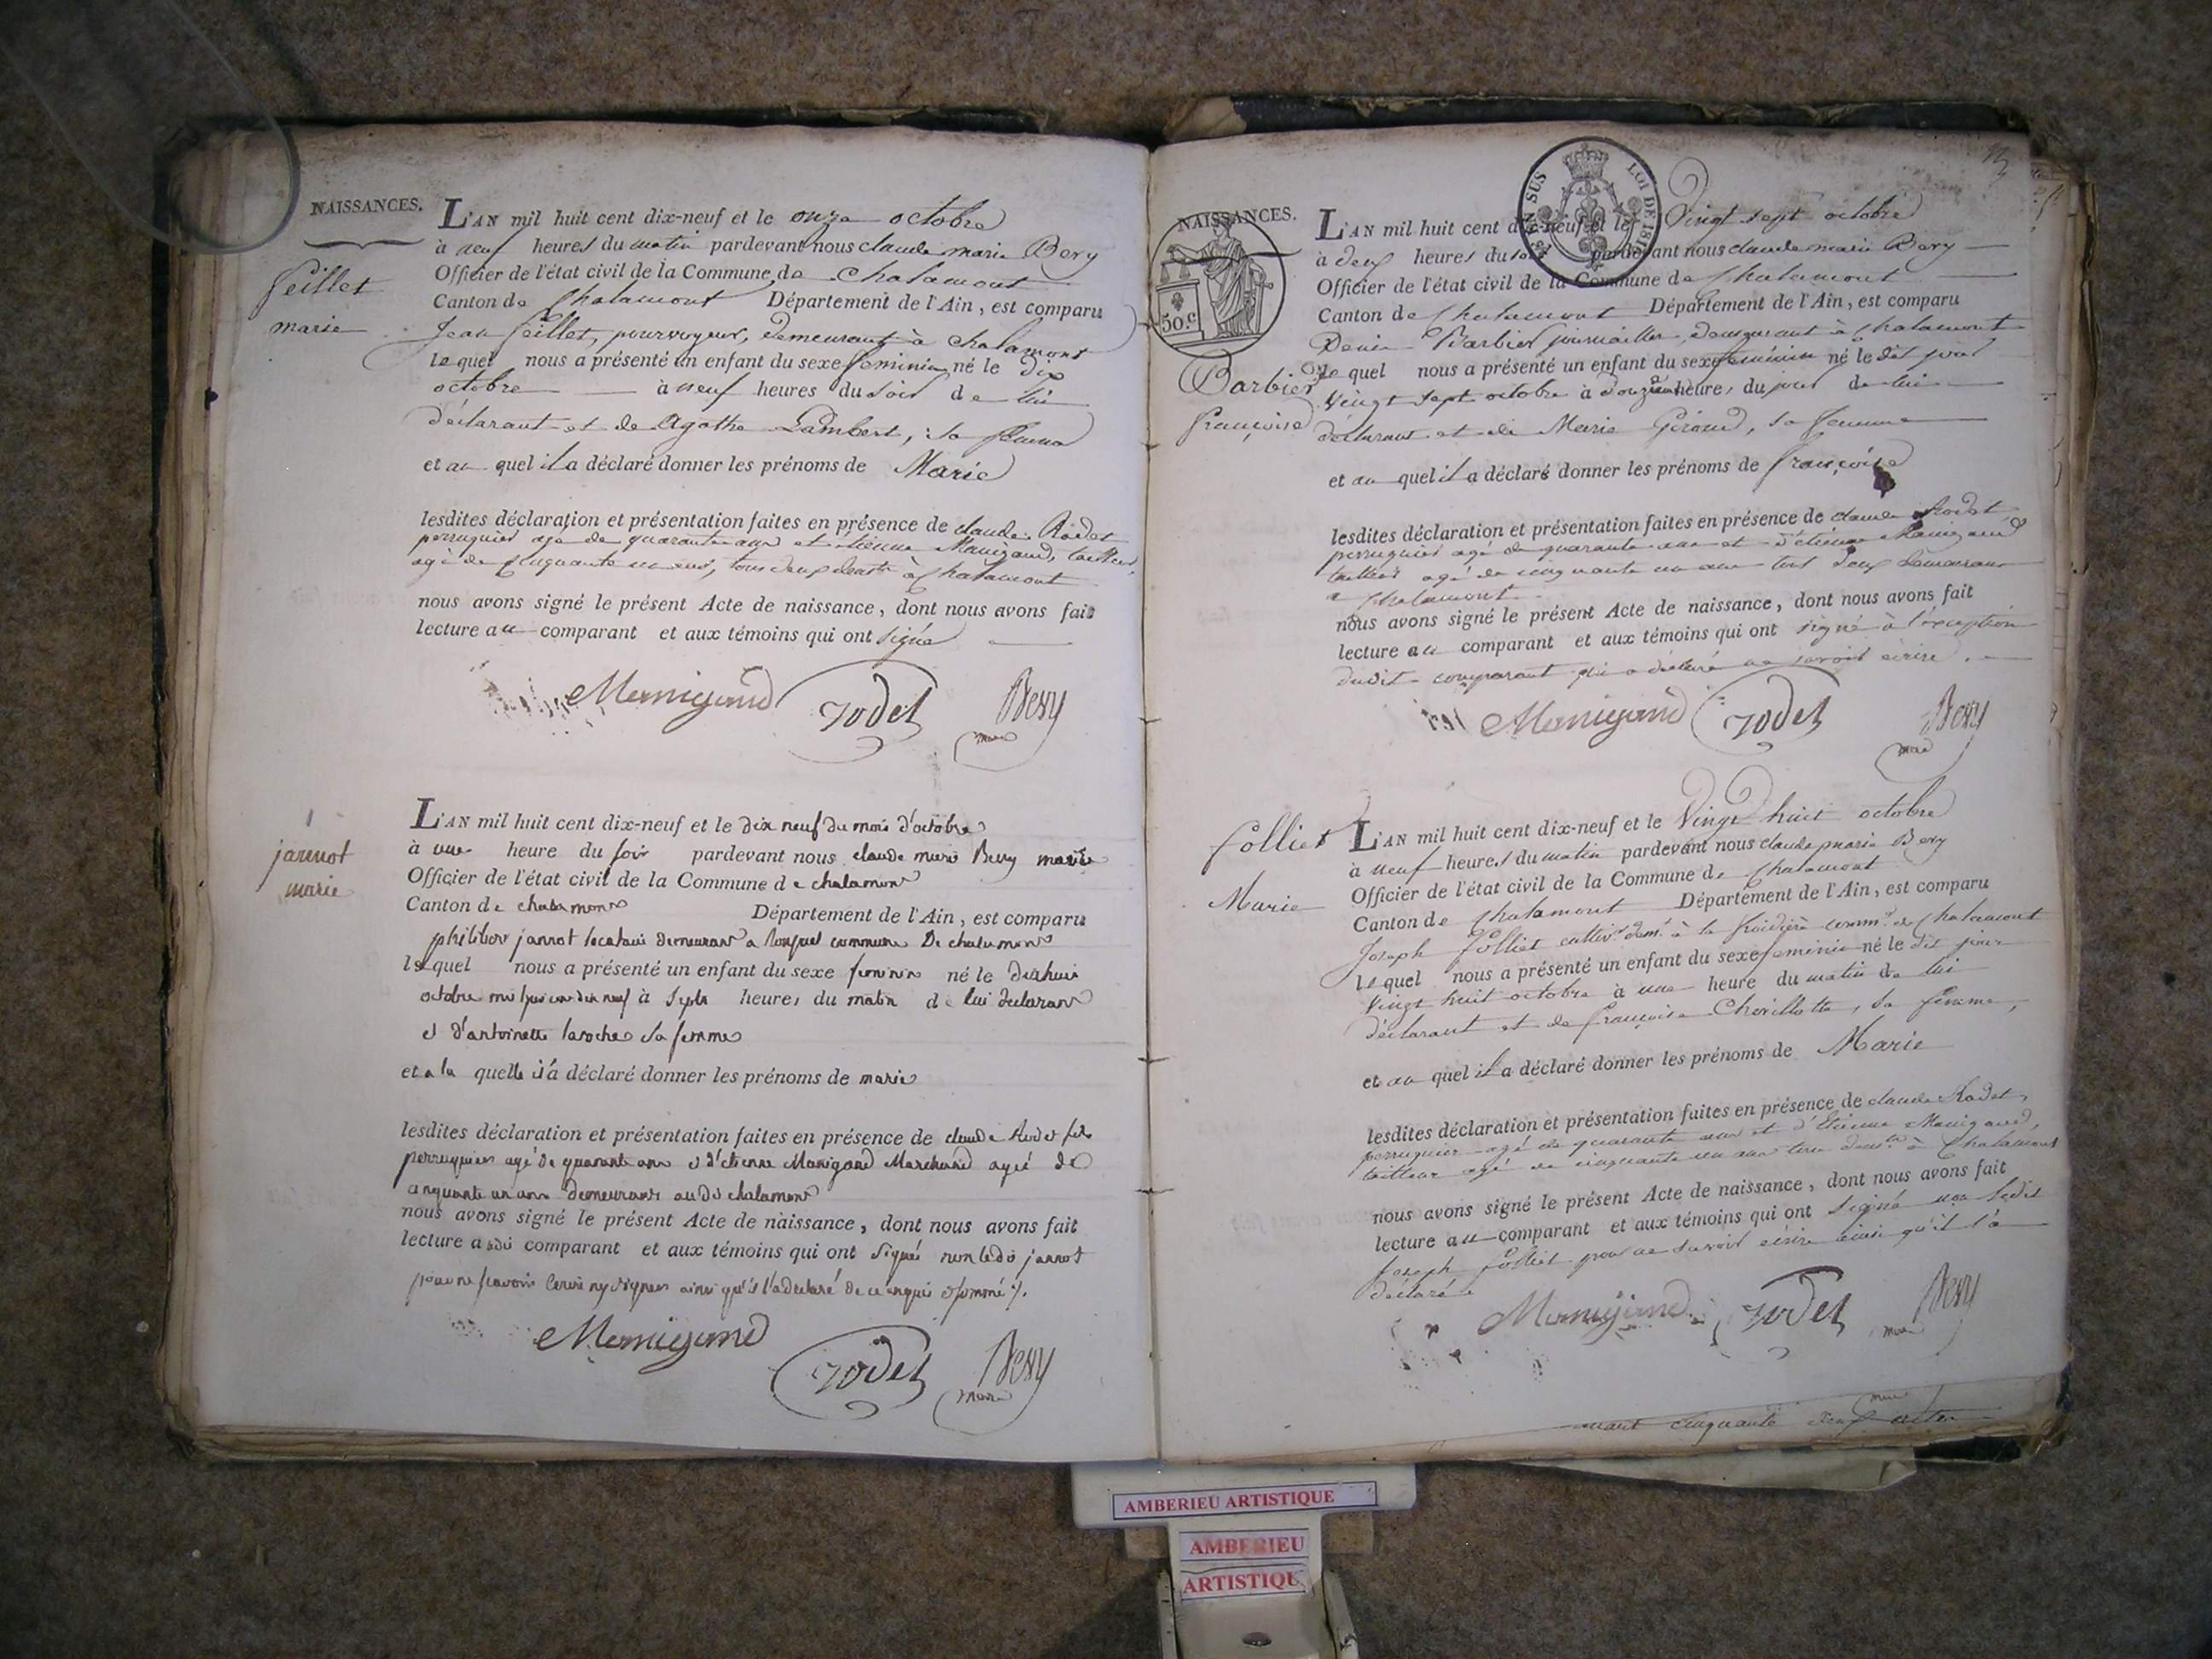 NAISSANCES.
feillet
marie
L'AN mil huit cent dix-neuf et le onze octobre
à neuf heures du matin pardevant nous claude marie Bery
Officier de l'état civil de la Commune de Chalamont
Canton de Chalamont Département de l'Ain, est comparu
Jean feillet, pourvoyeur, demeurant à chalamont
Le quel nous a présenté un enfant du sexe feminin né le dix
octobre à neuf heures du soir de lui
déclarant et de Agathe Lambert, sa femme
et au quel il a déclaré donner les prénoms de Marie
lesdites déclaration et présentation faites en présence de claude Rodet
perruquier agé de quarante ans et etienne Manigand, tailleur,
agé de cinquante un ans, tous deux demts à Chalamont
nous avons signé le présent Acte de naissance, dont nous avons fait
lecture au comparant et aux témoins qui ont signé
Manigand rodet Bery
maire
jannot
marie
L'AN mil huit cent dix-neuf et le dix neuf du mois d'octobre
à une heure du soir pardevant nous claude marie Bery maire
Officier de l'état civil de la Commune de chalamont
Canton de chalamont Département de l'Ain, est comparu
philibert jannot locataire demeurant a commune De chalamont
lequel nous a présenté un enfant du sexe feminin né le dixhuit
octobre mil huit cent dix neuf à sept heures du matin de lui declarant
et d'antoinette laroche sa femme
et a la quelle il a déclaré donner les prénoms de marie
lesdites déclaration et présentation faites en présence de claude Rodet fils
perruquier agé de quarante ans et d'etienne Manigand Marchand agé de
cinquante un ans demeurants audit chalamont
nous avons signé le présent Acte de naissance, dont nous avons fait
lecture audit comparant et aux témoins qui ont signés non ledit jannot
pour ne scavoir lecrire ny signer ainsi qu'il l'a declaré de ce enquis et sommé ./.
Manigand
rodet Bery
maire
13
NAISSANCES.
EN SUS LOI DE 181
50.c
Barbier
françoise
L'AN mil huit cent dix-neuf et le Vingt sept octobre
à deux heures du soir pardevant nous claude marie Bery
Officier de l'état civil de la Commune de Chalamont
Canton de Chalamont Département de l'Ain, est comparu
Denis Barbier journaillier, demeurant à chalamont
Le quel nous a présenté un enfant du sexe feminin né le dit jour
Vingt sept octobre à heures du jour de lui
déclarant et de Marie Giroud, sa femme
et au quel il a déclaré donner les prénoms de françoise
lesdites déclaration et présentation faites en présence de claude Rodet
perruquier agé de quarante ans et d'étienne Manigand
tailleur agé de cinquante un ans tous deux demeurant
a Chalamont
nous avons signé le présent Acte de naissance, dont nous avons fait
lecture au comparant et aux témoins qui ont signé à l'exception
dudit comparant qui a déclaré ne savoir écrire.
Manigand rodet Bery
maire
folliet
Marie
L'AN mil huit cent dix-neuf et le Vingt huit octobre
à neuf heures du matin pardevant nous claude marie Bery
Officier de l'état civil de la Commune de Chalamont
Canton de Chalamont Département de l'Ain, est comparu
Joseph folliet cultivr demt à la comme de Chalamont
Le quel nous a présenté un enfant du sexe feminin né le dit jour
Vingt huit octobre à une heure du matin de lui
déclarant et de françoise Chevillotte, sa femme,
et au quel il a déclaré donner les prénoms de Marie
lesdites déclaration et présentation faites en présence de claude Rodet,
perruquier agé de quarante ans et d'Etienne Manigand,
tailleur agé de cinquante un ans tous demts à Chalamont
nous avons signé le présent Acte de naissance, dont nous avons fait
lecture au comparant et aux témoins qui ont signé non ledit
Joseph folliet pour ne savoir écrire ainsi qu'il l'a
déclaré
Manigand rodet Bery
maire
cinquante deux actes
AMBERIEU ARTISTIQUE
AMBERIEU
ARTISTIQU